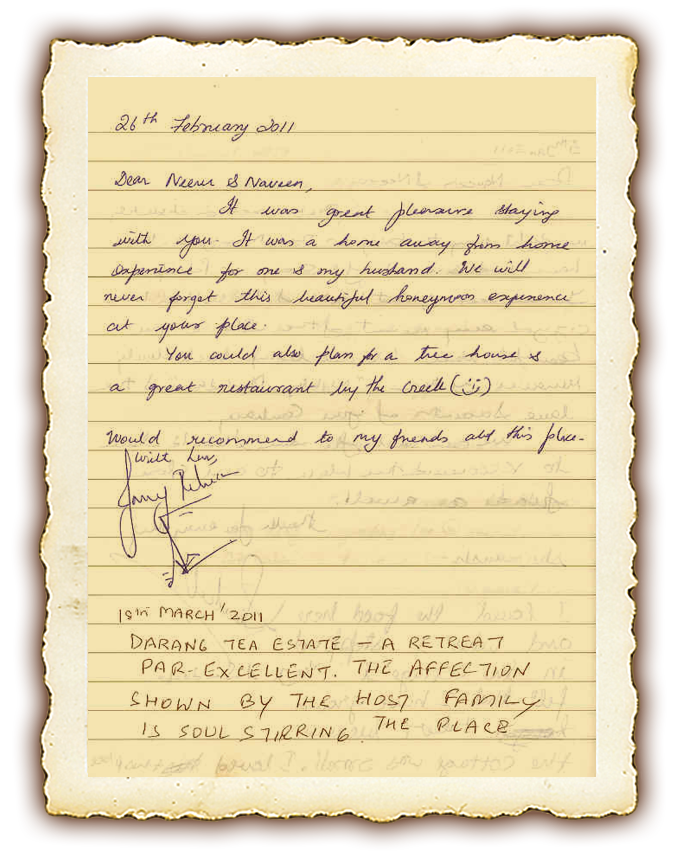 26th February 2011
Dear Neeru & Naveen,
It was great pleasure staying
with you. It was a home away from home
experience for one & my husband. We will
never forget this beautiful honeymoon experience
at your place.
You could also plan for a tree house &
a great restaurant by the creek (☺)
Would recommend to my friends abt this place.
With Luv,
18th MARCH '2011
DARANG TEA ESTATE – A RETREAT
PAR-EXCELLENT. THE AFFECTION
SHOWN BY THE HOST FAMILY
IS SOUL STIRRING. THE PLACE